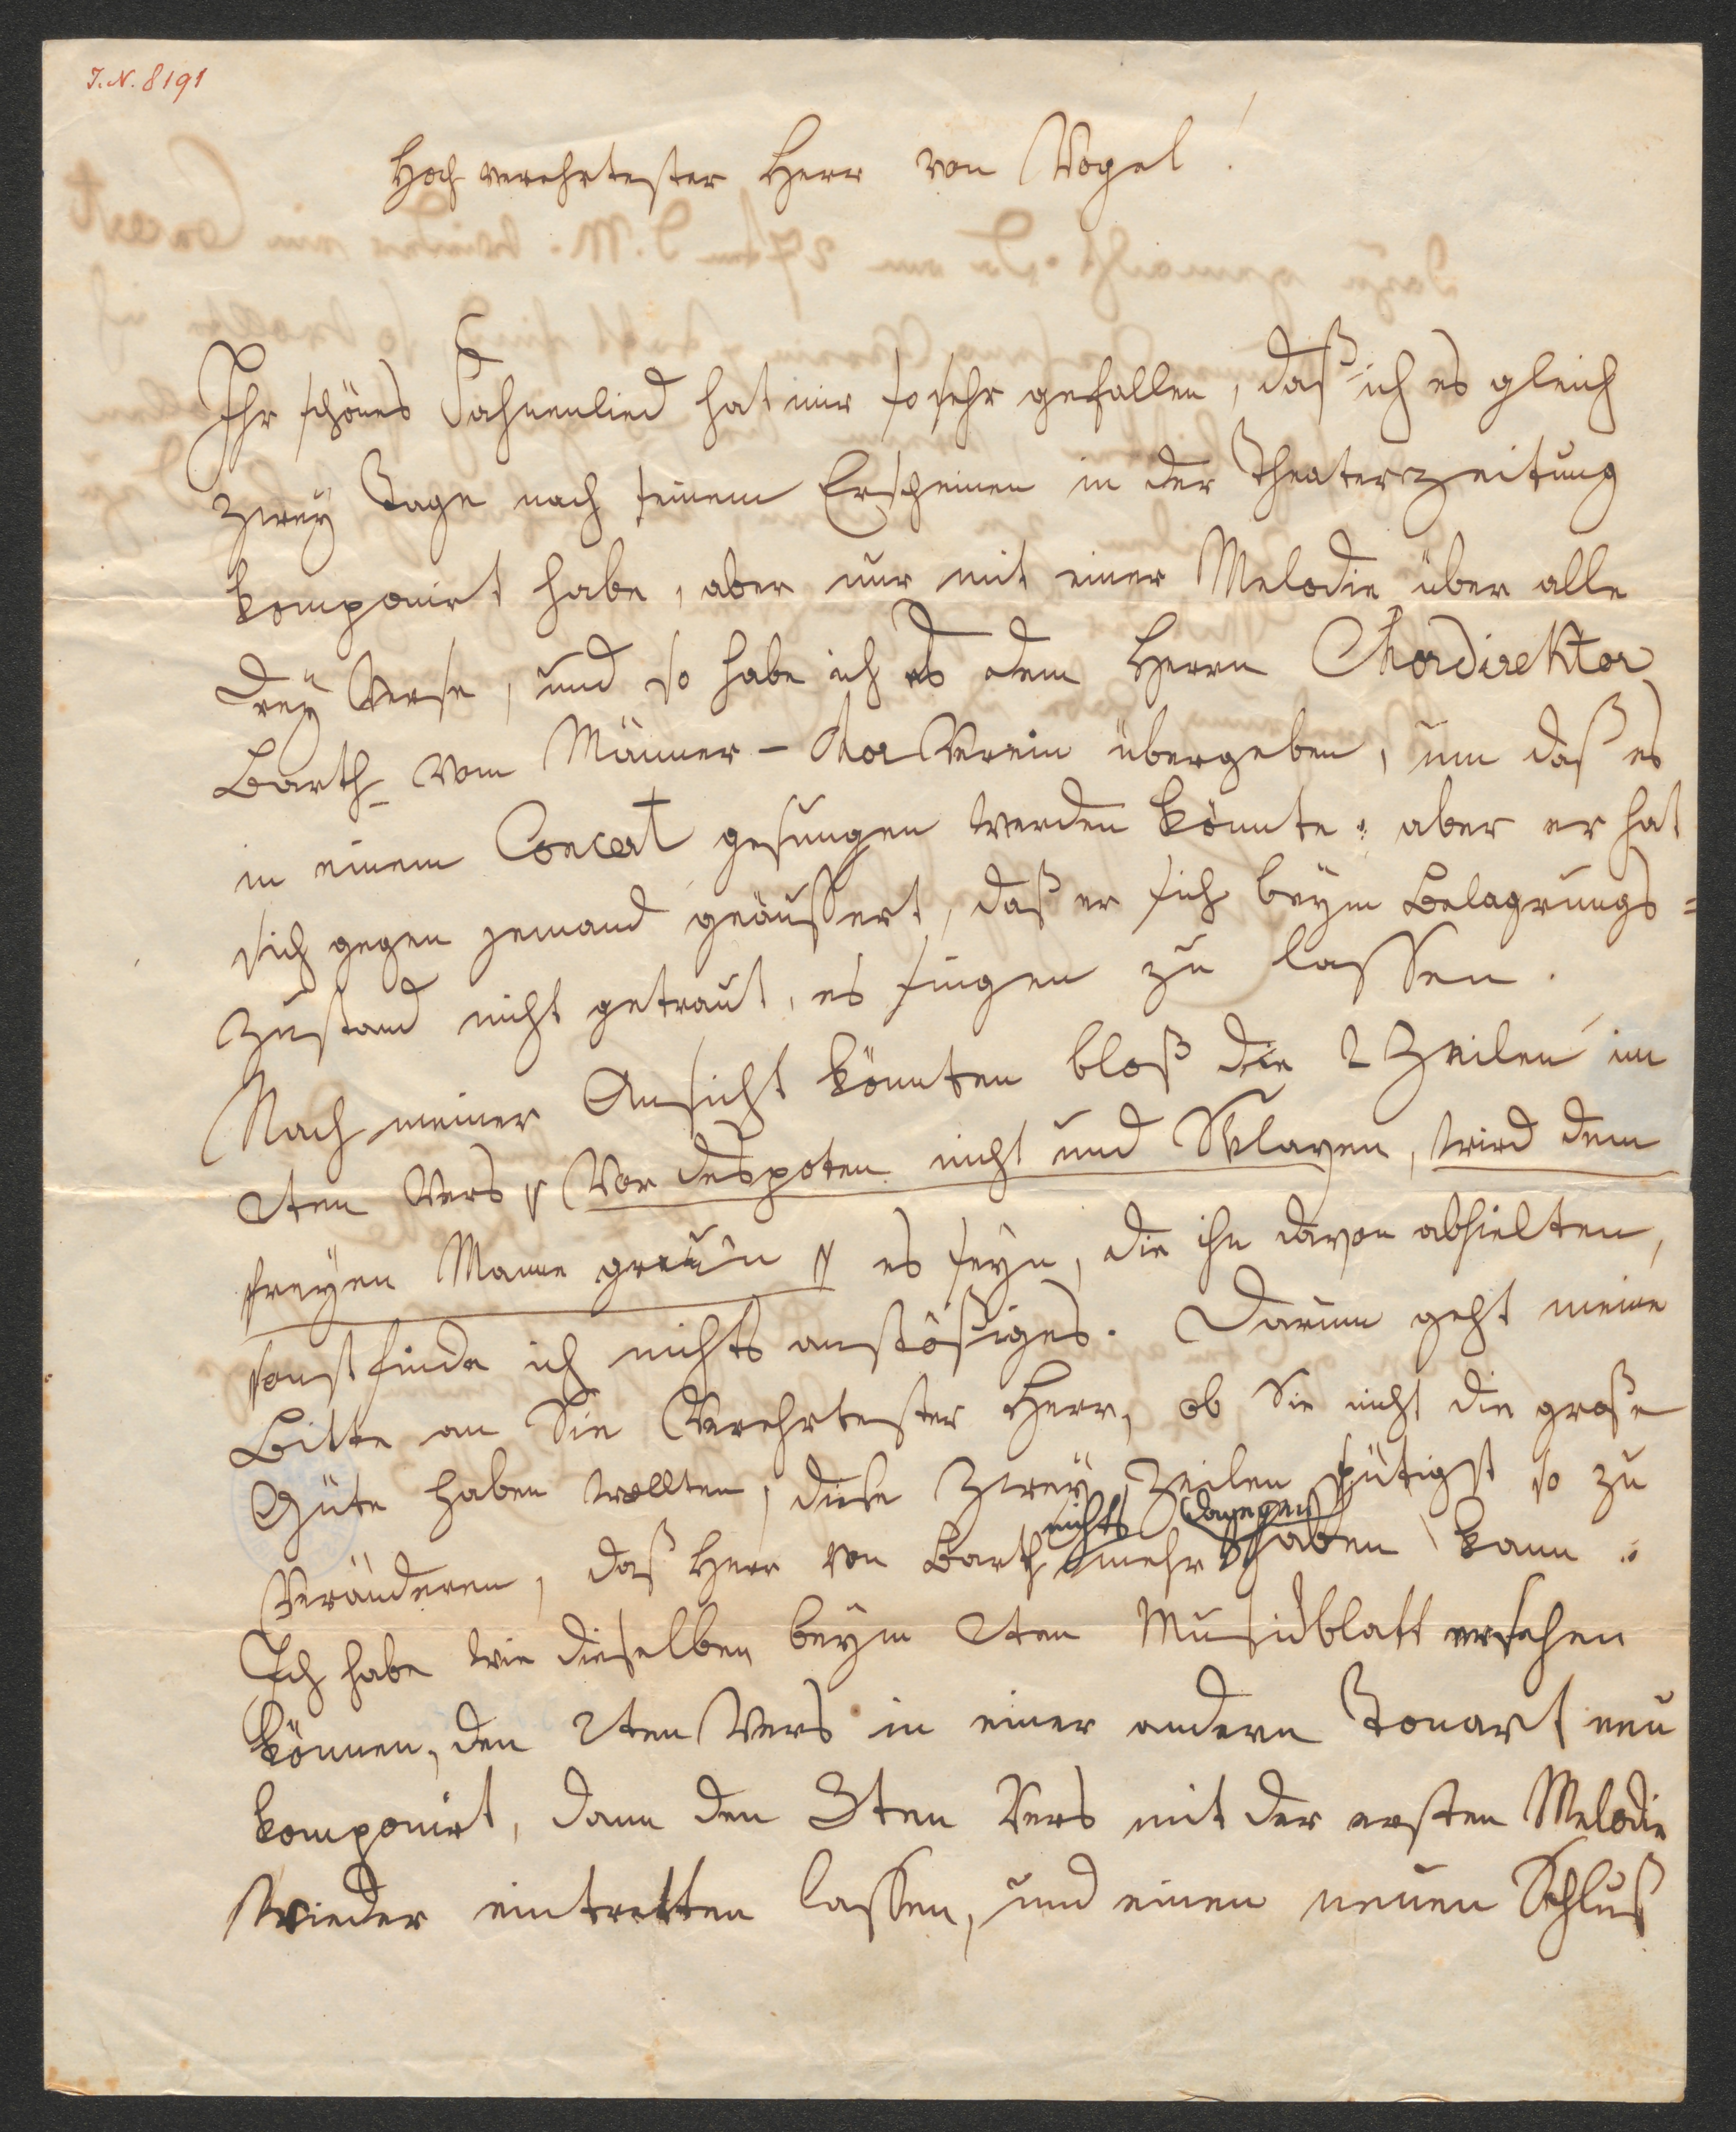 J.N. 8191
Hochverehrtester Herr von Vogel!
Ihr schönes Fahnenlied hat mir so sehr gefallen, daß ich es gleich
zwey Tage nach seinem Erscheinen in der Theaterzeitung
komponirt habe, aber nur mit einer Melodie über alle
drey Verse, und so habe ich es dem Herrn Chordirektor
Barth vom Männer-Chor Verein übergeben, um daß es
in einem Concert gesungen werden könnte; aber er hat
sich gegen jemand geäussert, daß er sich beym Belagrungs=
zustand nicht getraut, es singen zu lassen.
Nach meiner Ansicht könnten bloß die 2 Zeilen im
2ten Vers „Vor Despoten nicht und Sklaven, wird dem
freyen Manne graün“ es seyn, die ihn davon abhielten,
sonst finde ich nichts anstößiges. Darum geht meine
Bitte an Sie Verehrtester Herr, ob Sie nicht die große
Güte haben wollten, diese zwey Zeilen gütigst so zu
verändern, daß Herr von Barth nichts mehr dagegen haben kann.
Ich habe wie dieselben beym 2ten Musikblatt ersehen
können, den 2ten Vers in einer andern Tonart neu
komponirt, dann den 3ten Vers mit der ersten Melodie
wieder eintretten lassen, und einen neuen Schluß